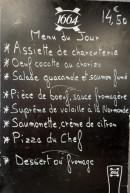 1664
14,50
Menu du Jour
* Assiette de charcuteria
* Oeuf cocotte au chorizo
* Salade guacamole et saumon fumé
* Pièce de boeuf, sauce fromagère
* Suprême de volaille à la Normande
* Saumonette, crème de citron
* Pizza du Chef
* Dessert ou fromage